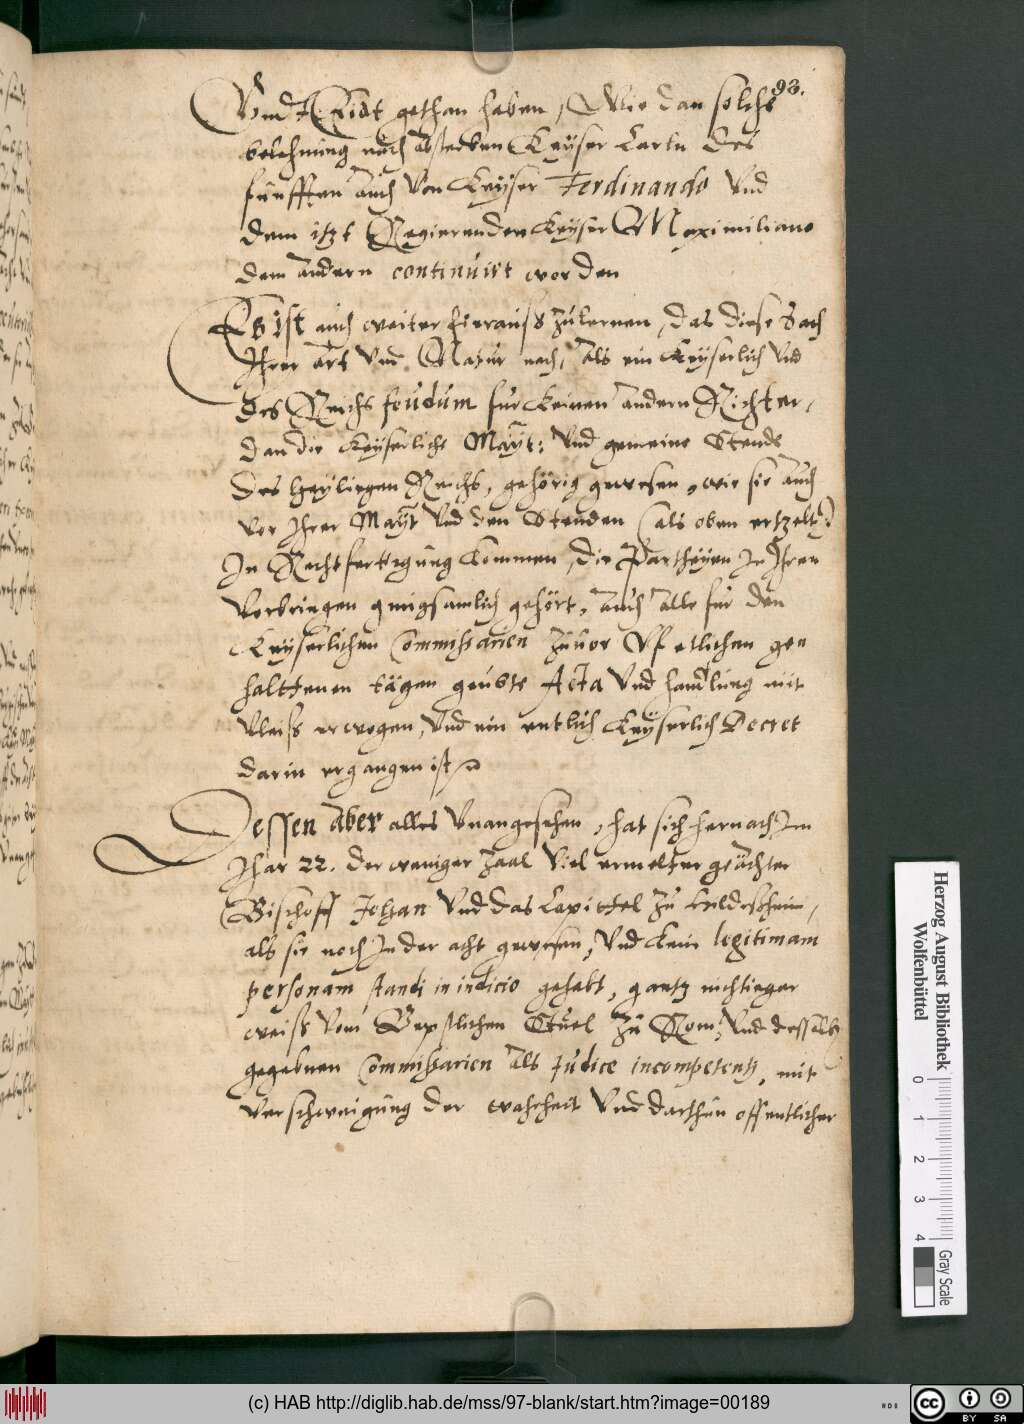 93.
Vnd Eidt gethan haben, Wie dan solche
belehnung nach absterben Keyser Carln des
fünfften auch von Keyser Ferdinando Vnd
dem itzt Regierenden Keyser Maximiliano
dem andern continuirt worden
Es ist auch weiter hierauß zulernen, das diese Sach
Ihrer art vnd Natur nach, als ein Keyserlich vnd
des Reichs feudum für keinen andern Richter,
dan die Keyserliche Mayt: Vnd gemeine Stende
des heyligen Reichs, gehörig gewesen, wie sie auch
vor Ihrer Mayt vnd den Stenden (als oben ertzelt)
In Rechtfertigung kommen, die Partheyen In Ihren
Vorbringen gnugsamlich gehört, auch alle für den
Keyserlichen Commissarien zuuor Vf etlichen gen
halttenen tägen geübte Acta Vnd handlung mit
Vleiß erwogen, Vnd ein entlich Keyserlich Decret
darin ergangen ist
Dessen aber alles Vnangesehen, hat sich hernach Im
Jhar 22. der weniger zaal Viel ermelter geächter
Bischoff Johan Vnd das Capittel zu Hildesheim,
als sie noch In der acht gewesen, Vnd kein legitimam
personam standi in iudicio gehabt, gantz nichtieger
weiß vom Bepstlichen Stuel zu Rom, Vnd desselb
gegebnen Commissarien als Iudice incompetenti, mit
Verschweigung der wahrheit Vnd darthun offentlicher
Herzog August Bibliothek
Wolfenbüttel
0 1 2 3 4
Gray Scale
(c) HAB http://diglib.hab.de/mss/97-blank/start.htm?image=00189
cc BY SA